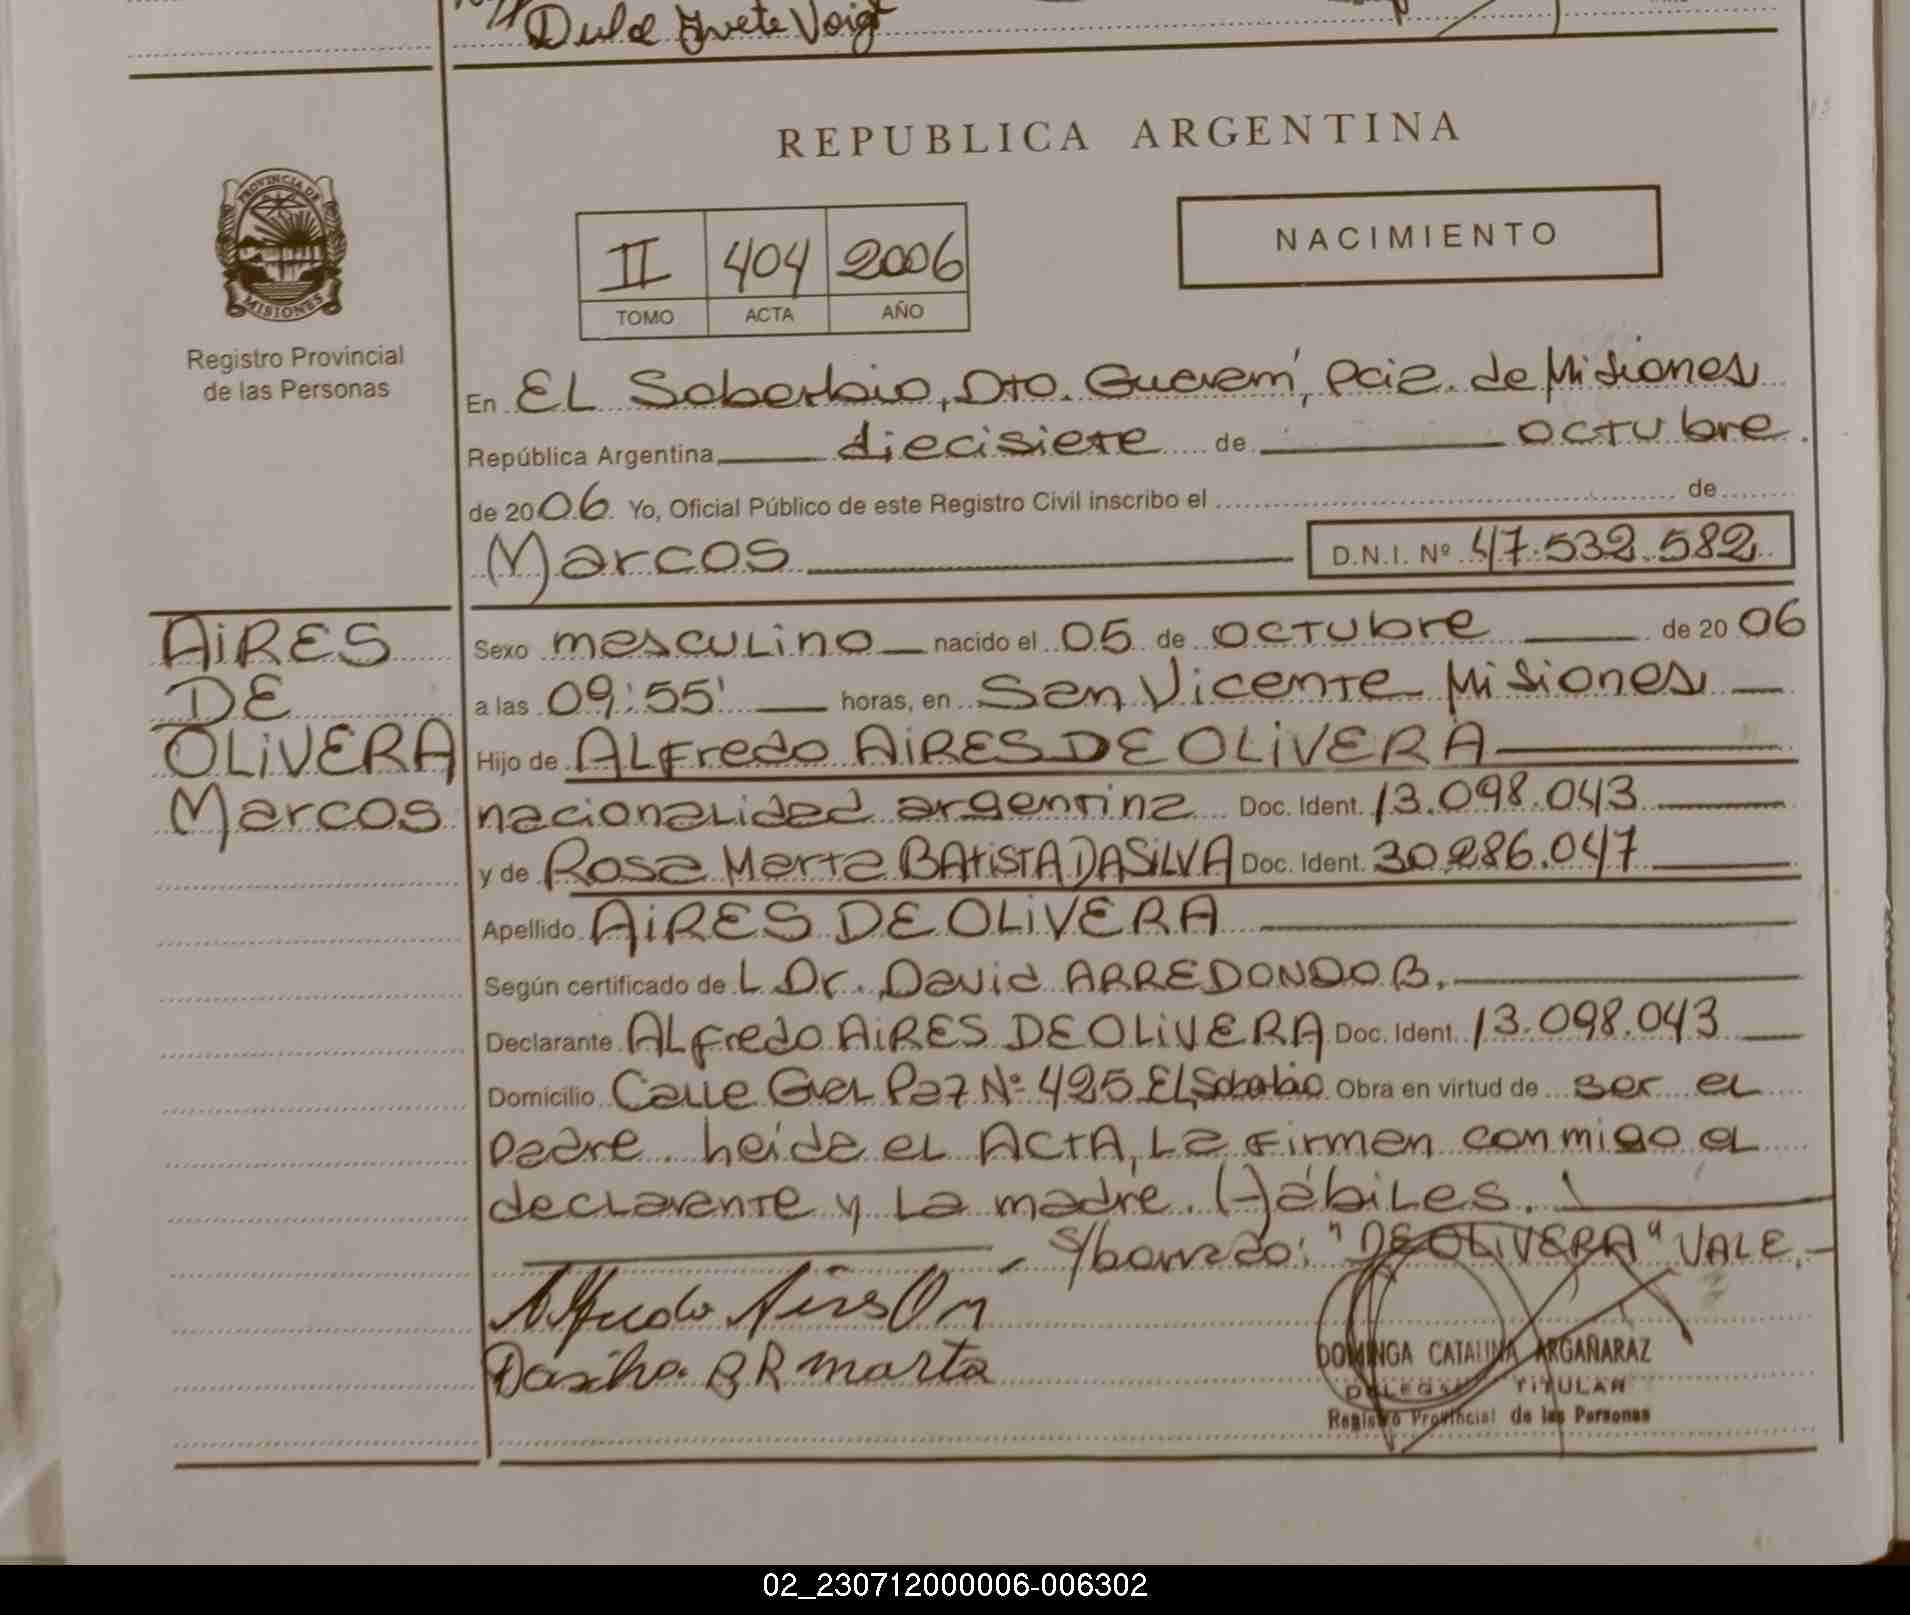 Dulce Ivete Voigt
REPUBLICA ARGENTINA
PROVINCIA DE
MISIONES
Registro Provincial
de las Personas
II 404 2006
TOMO ACTA AÑO
NACIMIENTO
En EL Soberbio, Dto. Guaraní, Pcia. de Misiones
República Argentina, diecisiete de octubre
de 2006 Yo, Oficial Público de este Registro Civil inscribo el de
Marcos D.N.I. Nº 47.532.582
AIRES
DE
OLIVERA
Marcos
Sexo masculino nacido el 05 de octubre de 2006
a las 09:55' horas, en San Vicente Misiones
Hijo de ALFredo AIRES DE OLIVERA
nacionalidad argentina Doc. Ident. 13.098.043
y de Rosa Marta BAtiSTA DA SILVA Doc. Ident. 30.286.047
Apellido AIRES DE OLIVERA
Según certificado de L Dr. David ARREDONDO B.
Declarante ALFredo AIRES DE OLIVERA Doc. Ident. 13.098.043
Domicilio Calle Gral Paz Nº 425 EL Soberbio Obra en virtud de ser el
padre leída el ACTA, La Firman conmigo el
declarante y La madre. Hábiles.
s/borrado: "DE OLIVERA" VALE.
Alfredo Aires
Dasilva B R marta
DOMINGA CATALINA ARGAÑARAZ
DELEGADA TITULAR
Registro Provincial de las Personas
02_230712000006-006302